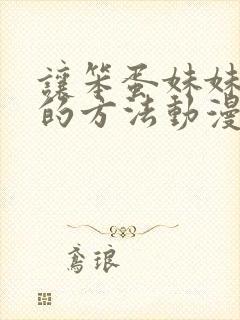 讓笨蛋妹妹
的方法動漫
鸢琅